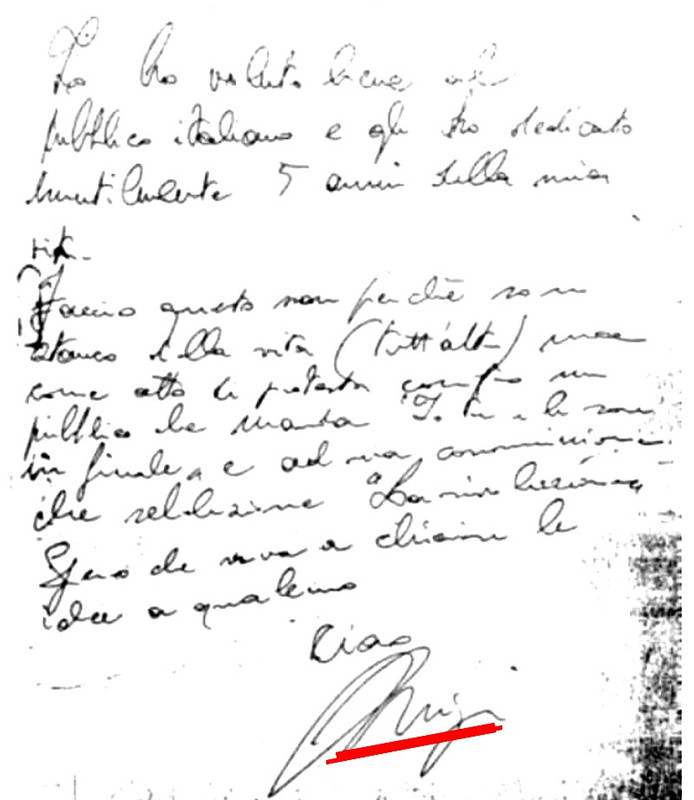 Io ho voluto bene al
pubblico italiano e gli ho dedicato
inutilmente 5 anni della mia
vita.
Faccio questo non perchè sono
stanco della vita (tutt'altro) ma
come atto di protesta contro un
pubblico che manda "Io tu e le rose
in finale" e ad una commissione
che seleziona "La rivoluzione"
Spero che serva a chiarire le
idee a qualcuno
Ciao
Luigi